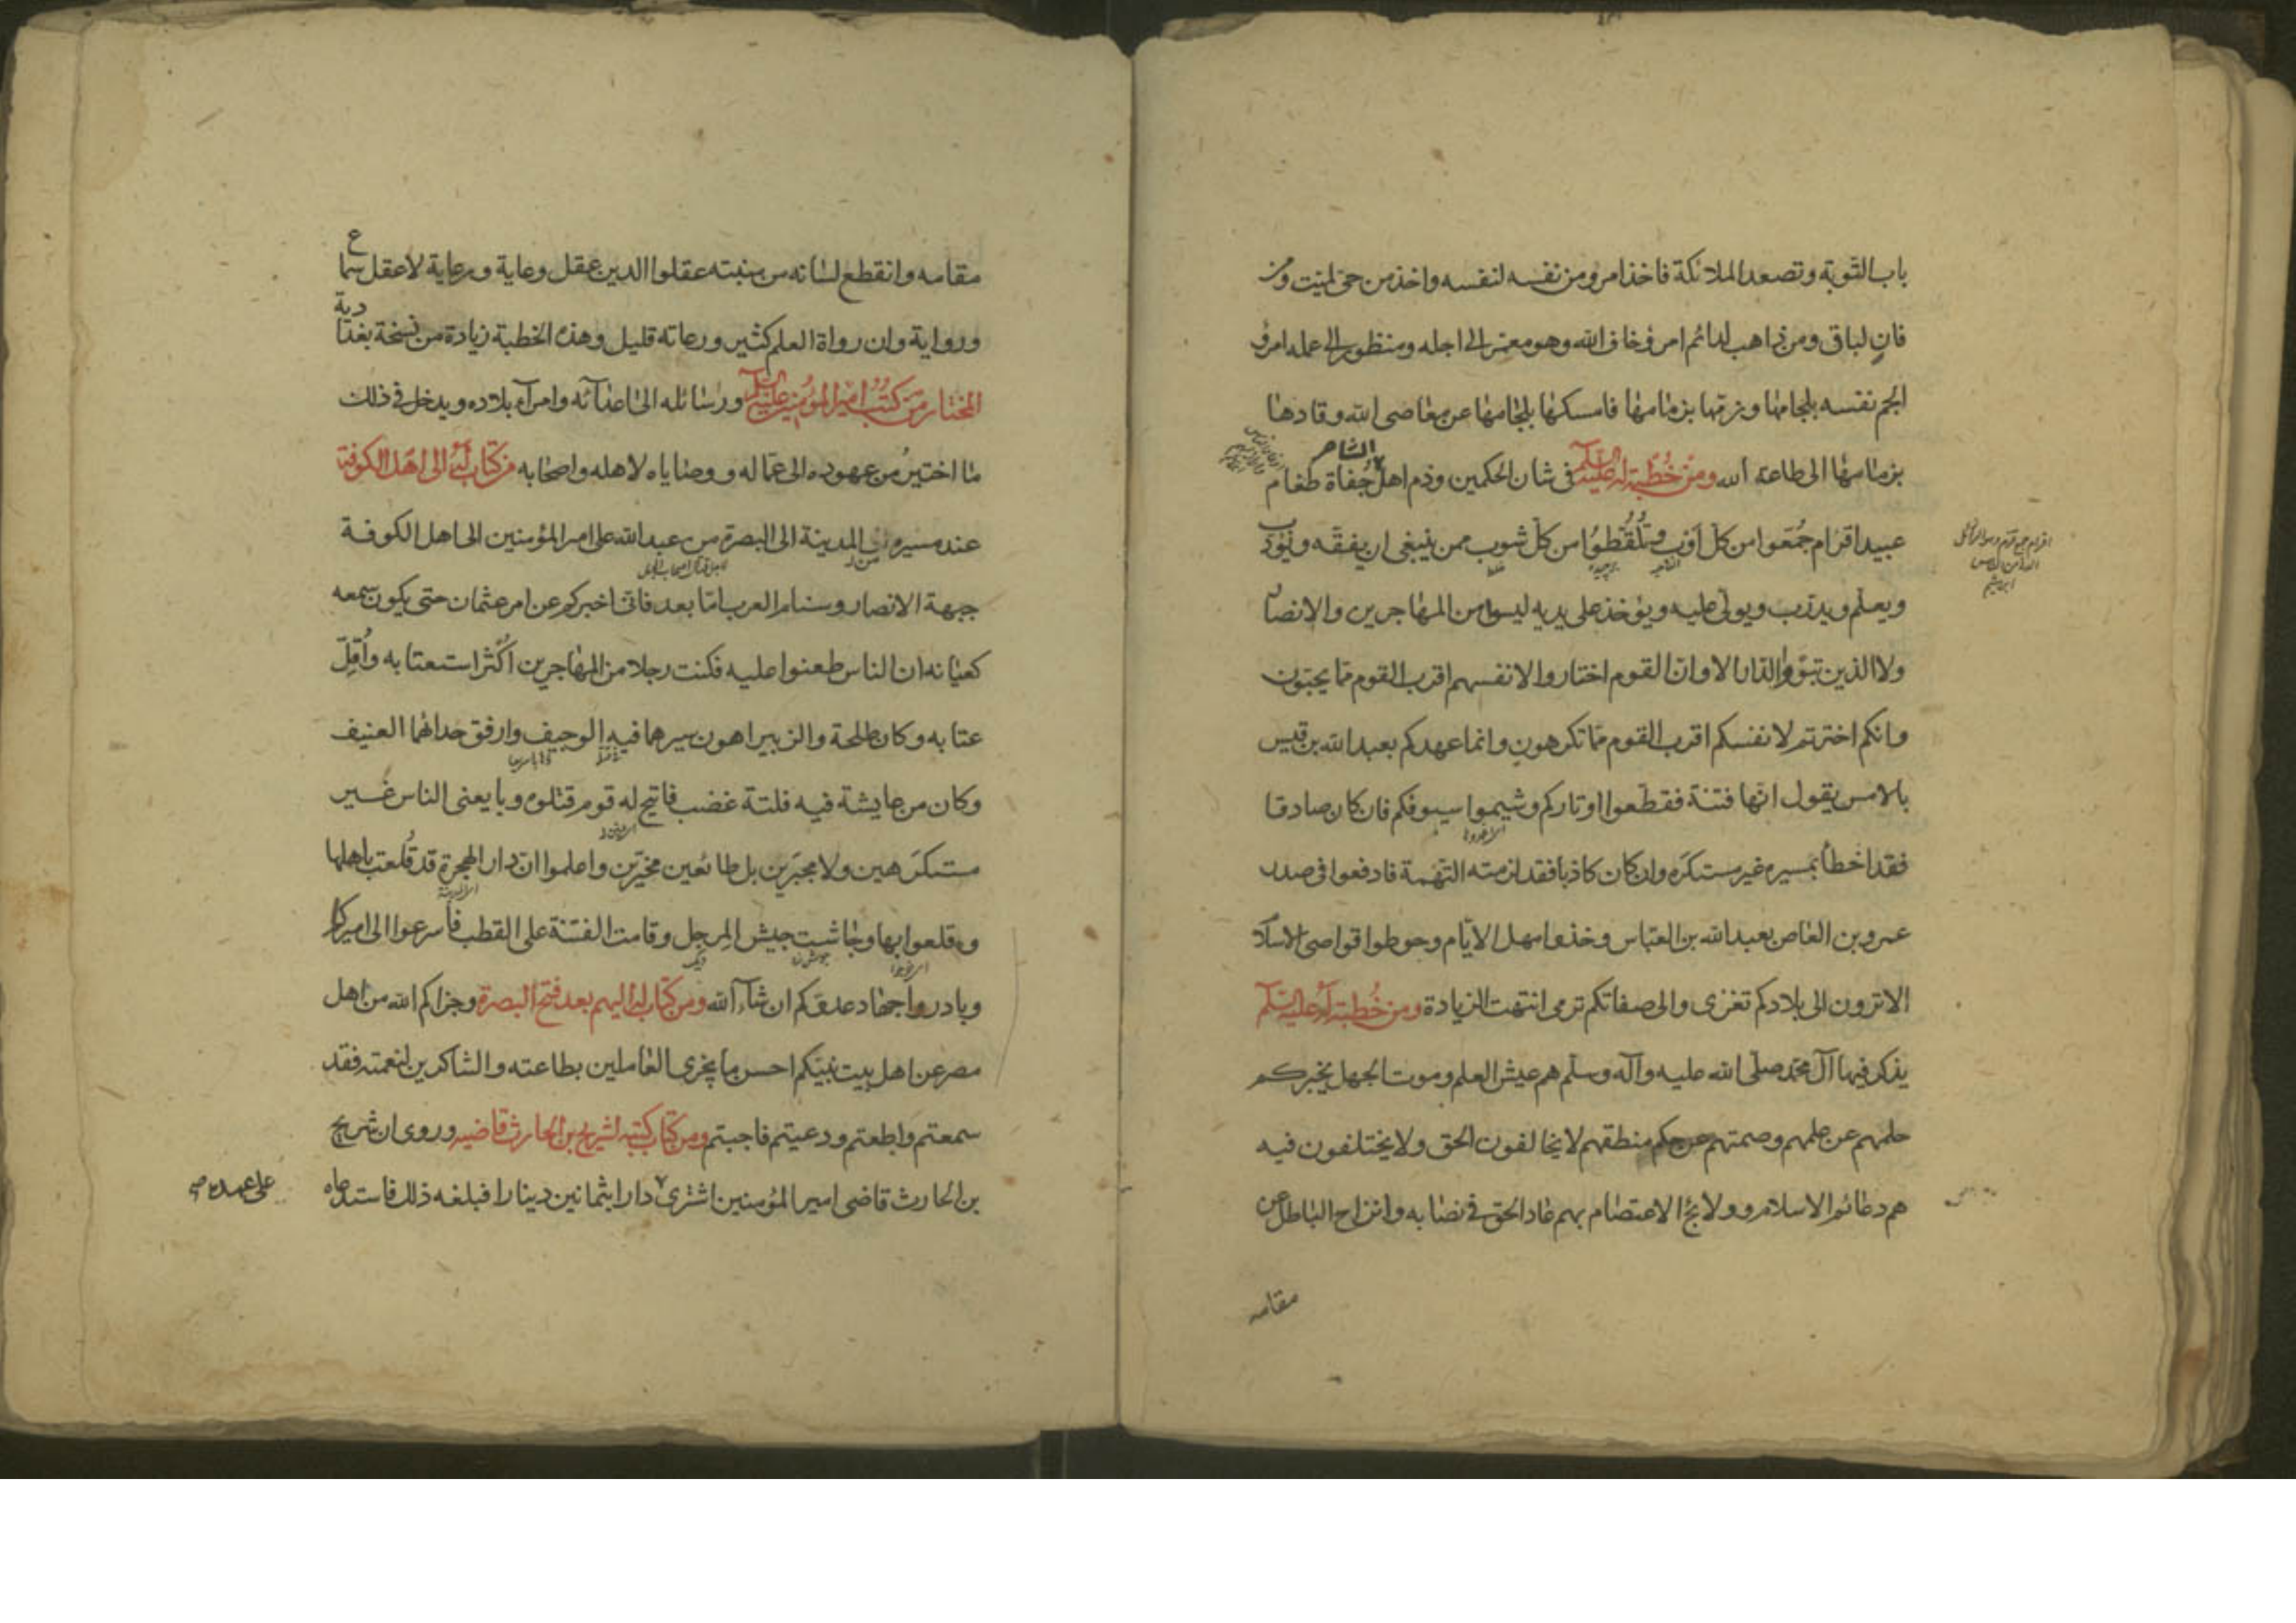 باب التوبة وتصعد الملائكة فاخذ امرو من نفسه لنفسه واخذ من حى لميت ومن
فان لباق ومن ذاهب لدائم امرؤ خاف الله وهو معمر الى اجله ومنظور الى عمله امرؤ
الجم نفسه بلجامها وزمها بزمامها فامسكها بلجامها عن معاصى الله وقادها
الشام
بزمامها الى طاعة الله ومن خطبة له عليه السلم فى شان الحكمين وذم اهل جفاة طغام
عبيد اقزام جمعوا من كل اوب وتلقطوا من كل شوب ممن ينبغى ان يفقه ويؤدب
ويعلم ويدرب ويولى عليه ويؤخذ على يديه ليسوا من المهاجرين والانصار
ولا الذين تبوؤا الدار الا وان القوم اختاروا لانفسهم اقرب القوم مما يحبون
وانكم اخترتم لانفسكم اقرب القوم مما تكرهون وانما عهدكم بعبد الله بن قيس
بالامس يقول انها فتنة فقطعوا اوتاركم وشيموا سيوفكم فان كان صادقا
فقد اخطا بمسيره غير مستكره وان كان كاذبا فقد لزمته التهمة فادفعوا فى صدر
عمرو بن العاص بعبد الله بن العباس وخذوا مهل الايام وحوطوا قواصى الاسلام
الا ترون الى بلادكم تغزى والى صفاتكم ترمى انتهت الزيادة ومن خطبة له عليه السلم
يذكر فيها آل محمد صلى الله عليه وآله وسلم هم عيش العلم وموت الجهل يخبركم
حلمهم عن علمهم وصمتهم عن حكم منطقهم لا يخالفون الحق ولا يختلفون فيه
هم دعائم الاسلام وولائج الاعتصام بهم عاد الحق فى نصابه وانزاح الباطل عن
مقامه
مقامه وانقطع لسانه من منبته عقلوا الدين عقل وعاية ورعاية لا عقل سماع
ورواية وان رواة العلم كثير ورعاته قليل وهذه الخطبة زيادة من نسخة بغدادية
المختار من كتب امير المؤمنين عليه السلم ورسائله الى اعدائه وامرآء بلاده ويدخل فى ذلك
ما اختير من عهوده الى عماله ووصاياه لاهله واصحابه من كتاب له الى اهل الكوفة
عند مسيره من المدينة الى البصرة من عبد الله على امير المؤمنين الى اهل الكوفة
جبهة الانصار وسنام العرب اما بعد فانى اخبركم عن امر عثمان حتى يكون سمعه
كعيانه ان الناس طعنوا عليه فكنت رجلا من المهاجرين اكثر استعتابه واقل
عتابه وكان طلحة والزبير اهون سيرهما فيه الوجيف وارفق حدائهما العنيف
وكان من عايشة فيه فلتة غضب فاتيح له قوم قتلوه وبايعنى الناس غير
مستكرهين ولا مجبرين بل طائعين مخيرين واعلموا ان دار الهجرة قد قلعت باهلها
وقلعوا بها وجاشت جيش المرجل وقامت الفتنة على القطب فأسرعوا الى اميركم
وبادروا جهاد عدوكم ان شاء الله ومن كتاب له اليهم بعد فتح البصرة وجزاكم الله من اهل
مصر عن اهل بيت نبيكم احسن ما يجزى العاملين بطاعته والشاكرين لنعمته فقد
سمعتم واطعتم ودعيتم فاجبتم ومن كتاب كتبه لشريح بن الحارث قاضيه وروى ان شريح
بن الحارث قاضى امير المؤمنين اشترى دارا بثمانين دينارا فبلغه ذلك فاستدعاه
على عهده